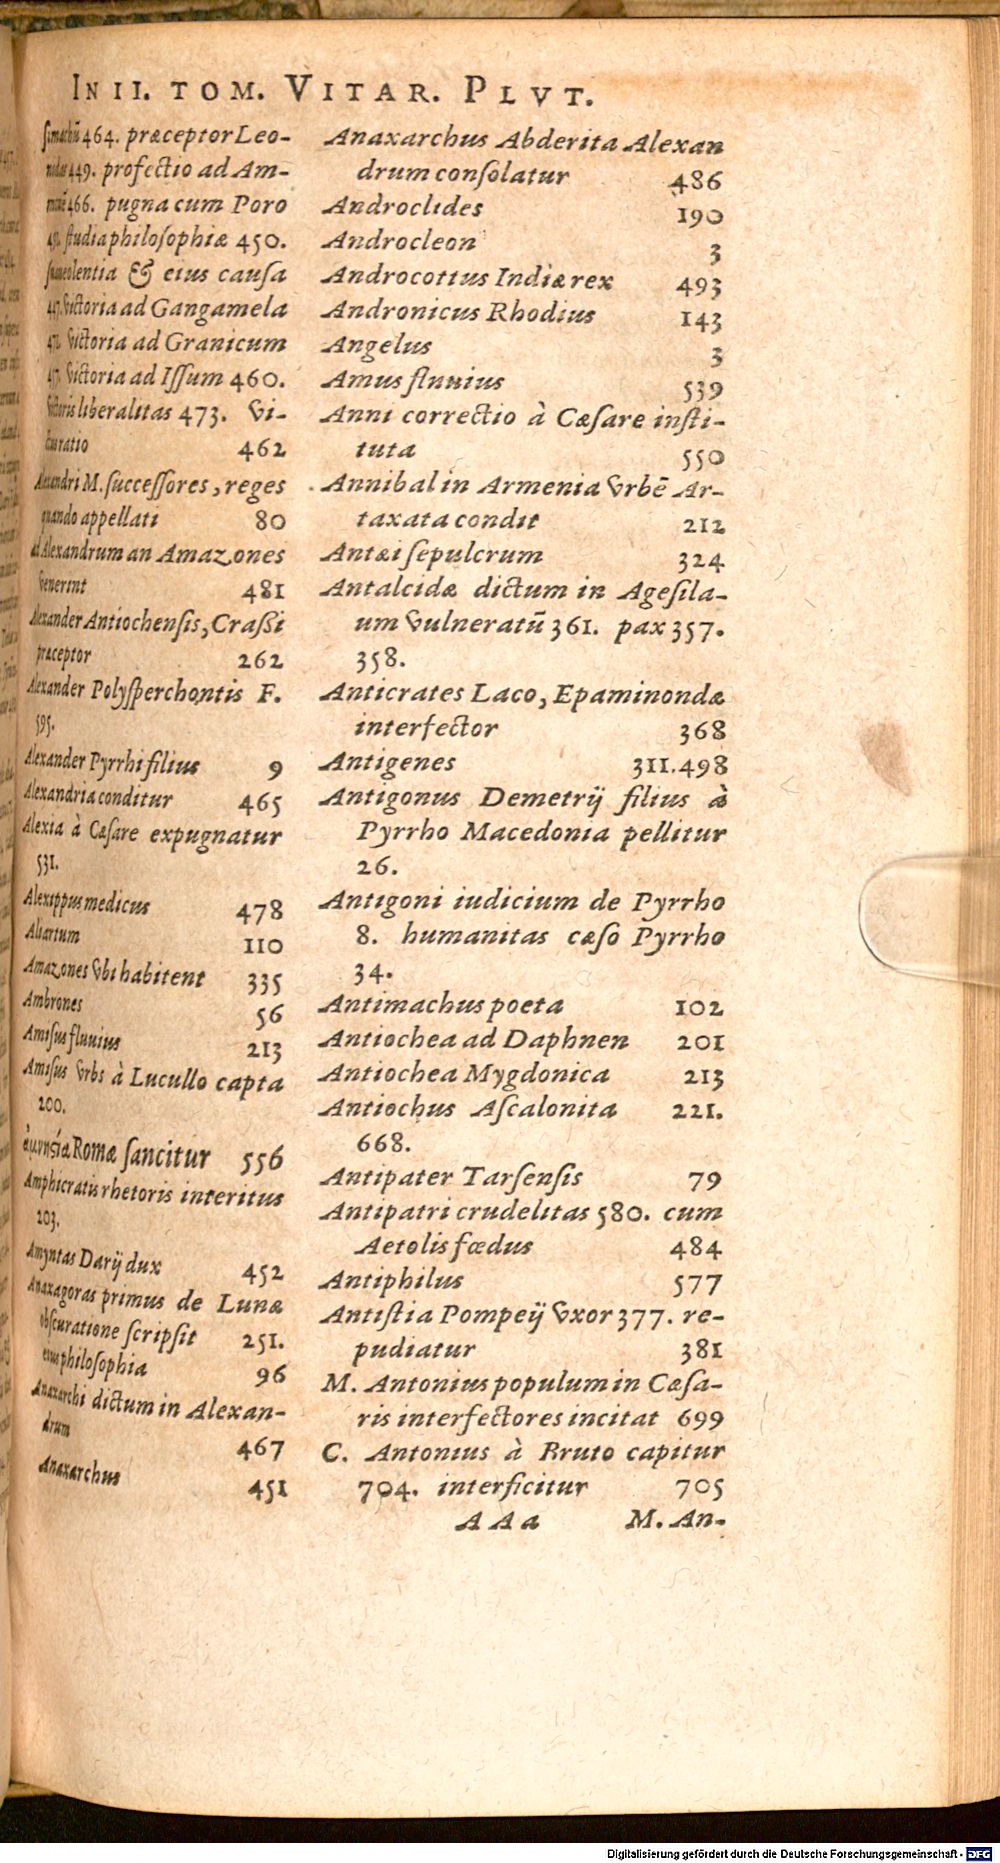 IN II. TOM. VITAR. PLVT.
ſimachū 464. præceptor Leo-
nidas 449. profectio ad Am-
466. pugna cum Poro
ſtudia philoſophiæ 450.
& eius cauſa
victoria ad Gangamela
victoria ad Granicum
victoria ad Iſſum 460.
victoris liberalitas 473. vi-
ratio 462
Alexandri M. ſucceſſores, reges
quando appellati 80
ad Alexandrum an Amazones
venerint 481
Alexander Antiochenſis, Craßi
præceptor 262
Alexander Polyſperchontis F.
595.
Alexander Pyrrhi filius 9
Alexandria conditur 465
Alexia à Cæſare expugnatur
531.
Alexippus medicus 478
Aliartum 110
Amazones vbi habitent 335
Ambrones 56
Amiſus fluuius 213
Amiſus vrbs à Lucullo capta
200.
Romæ ſancitur 556
Amphicratis rhetoris interitus
203.
Amyntas Darij dux 452
Anaxagoras primus de Lunæ
obſcuratione ſcripſit 251.
eius philoſophia 96
Anaxarchi dictum in Alexan-
drum 467
Anaxarchus 451
Anaxarchus Abderita Alexan
drum conſolatur 486
Androclides 190
Androcleon 3
Androcottus Indiæ rex 493
Andronicus Rhodius 143
Angelus 3
Amus fluuius 539
Anni correctio à Cæſare inſti-
tuta 550
Annibal in Armenia vrbē Ar-
taxata condit 212
Antæi ſepulcrum 324
Antalcidæ dictum in Ageſila-
um vulneratū 361. pax 357.
358.
Anticrates Laco, Epaminondæ
interfector 368
Antigenes 311.498
Antigonus Demetrij filius à
Pyrrho Macedonia pellitur
26.
Antigoni iudicium de Pyrrho
8. humanitas cæſo Pyrrho
34.
Antimachus poeta 102
Antiochea ad Daphnen 201
Antiochea Mygdonica 213
Antiochus Aſcalonita 221.
668.
Antipater Tarſenſis 79
Antipatri crudelitas 580. cum
Aetolis fœdus 484
Antiphilus 577
Antiſtia Pompeij vxor 377. re-
pudiatur 381
M. Antonius populum in Cæſa-
ris interfectores incitat 699
C. Antonius à Bruto capitur
704. interficitur 705
A A a M. An-
Digitalisierung gefördert durch die Deutsche Forschungsgemeinschaft - DFG